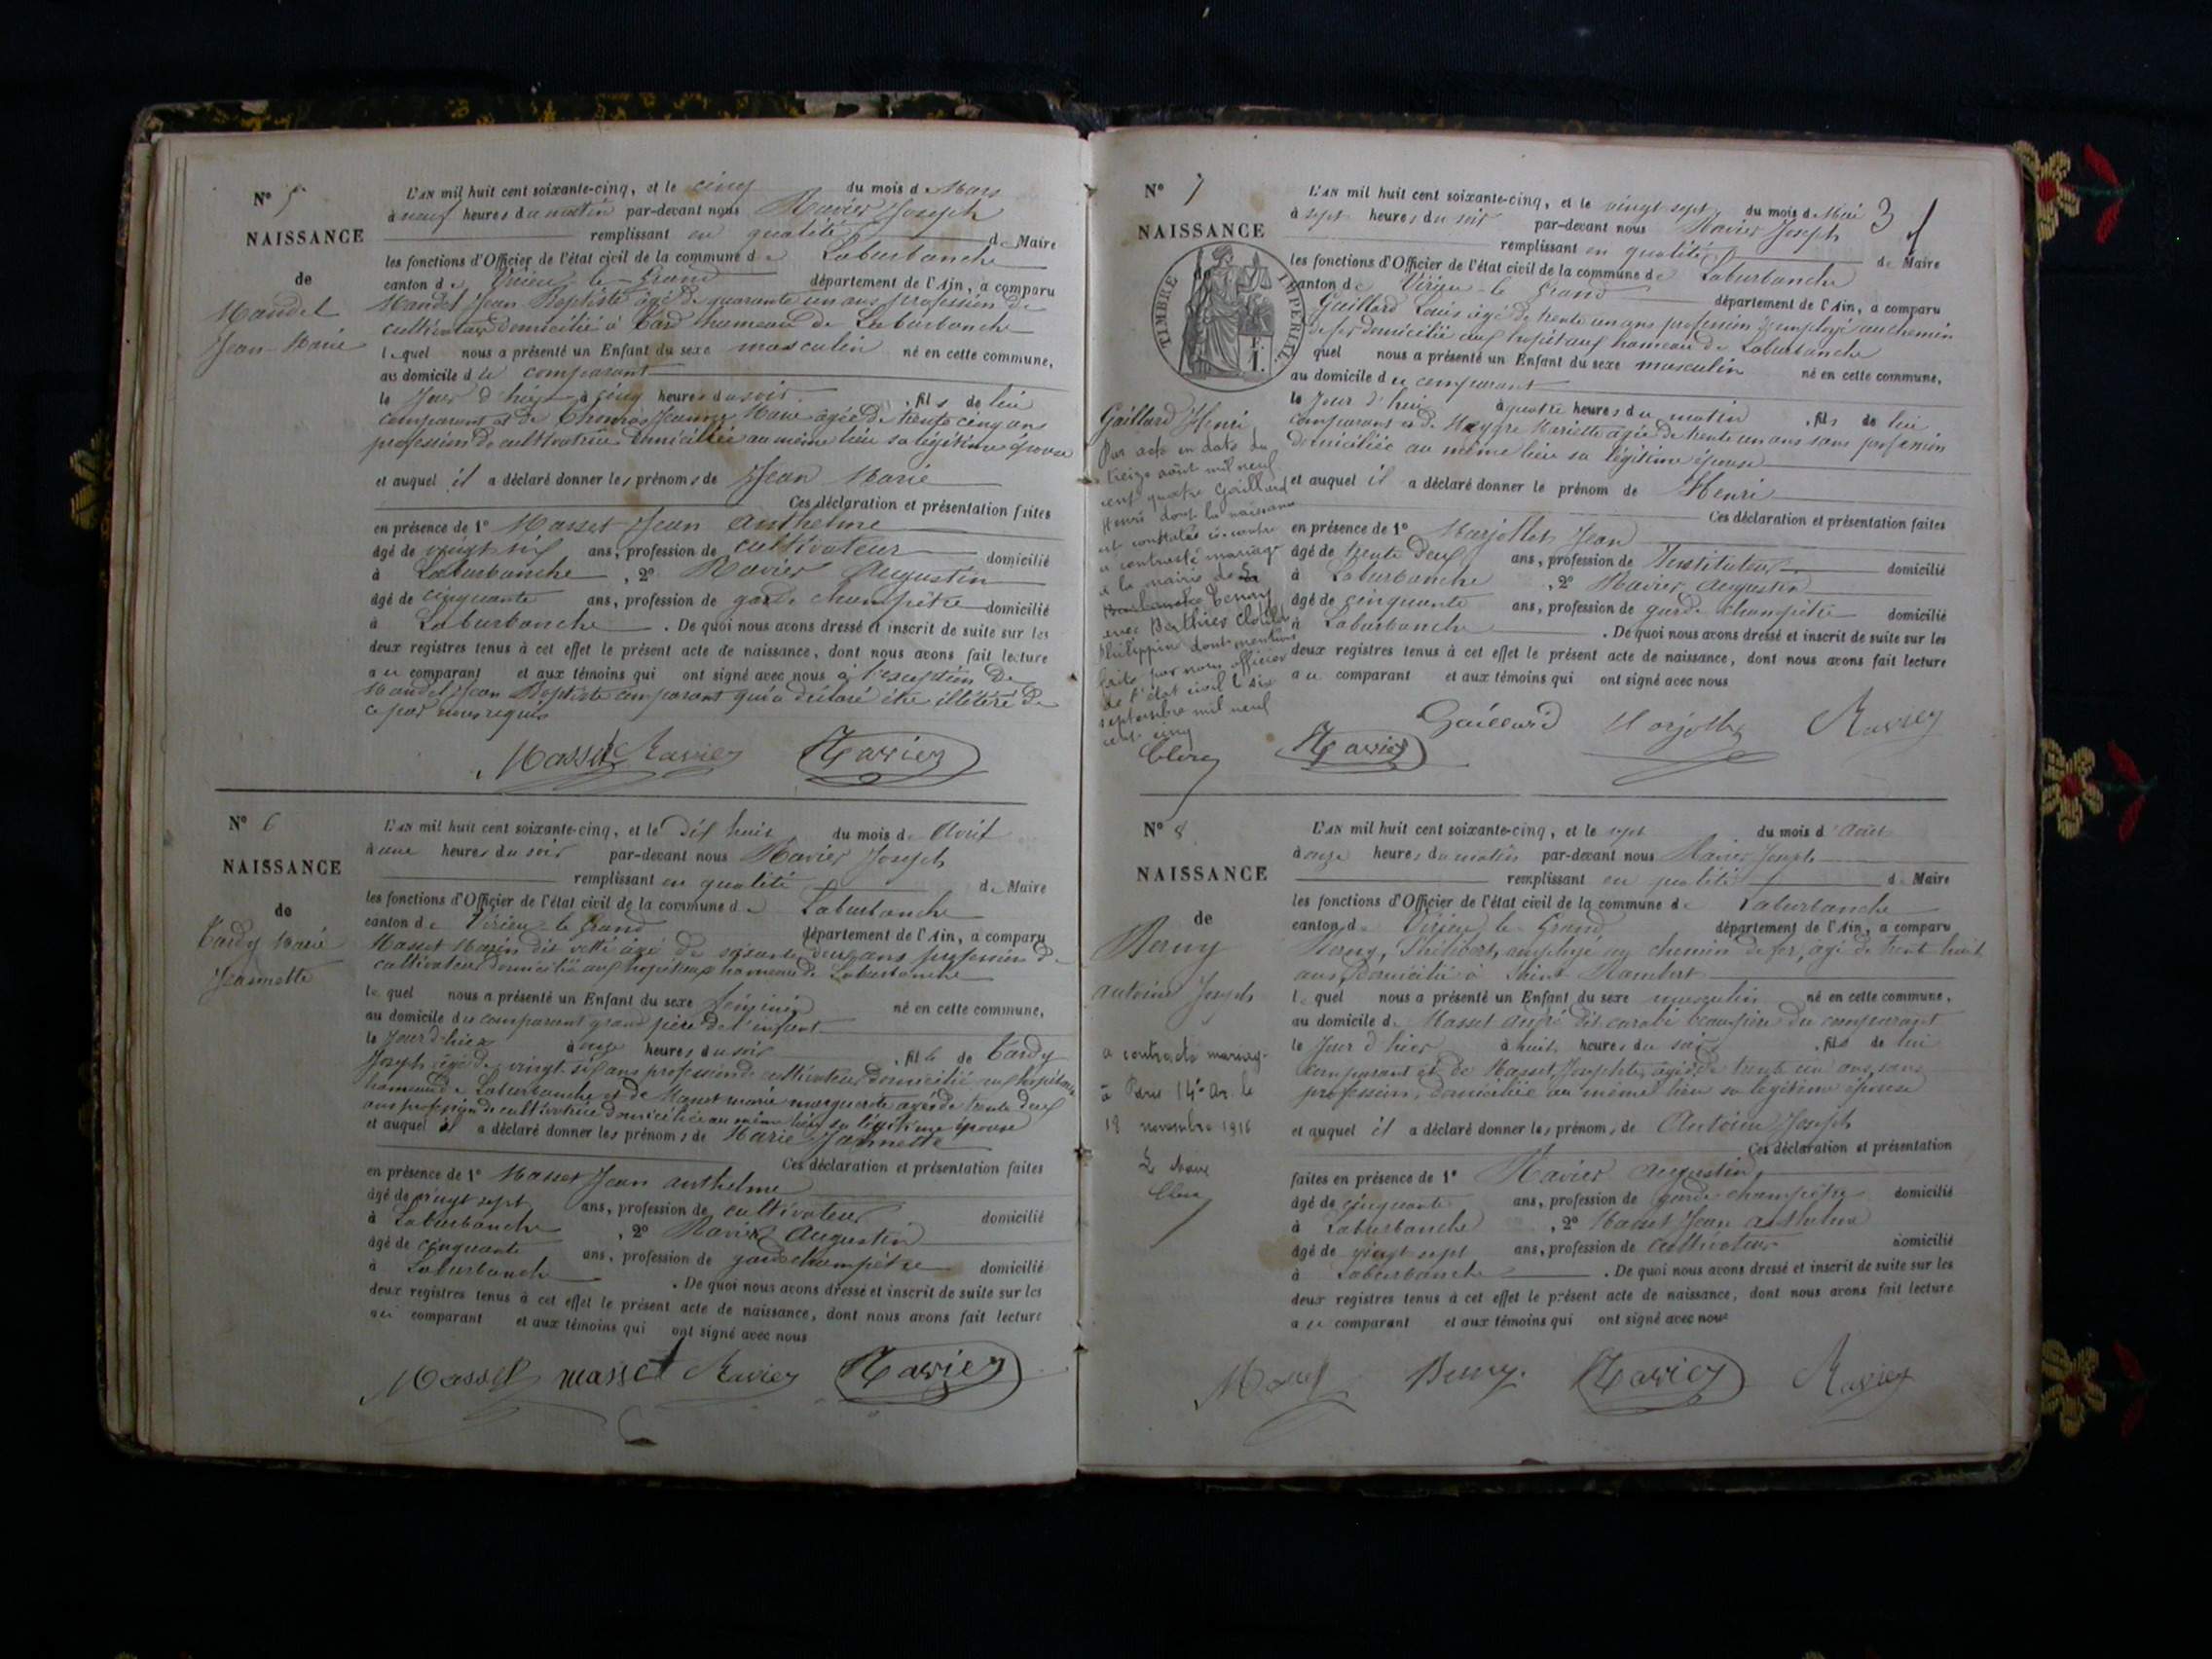 N° 5
NAISSANCE
de
Mandel
Jean-Marie
L'AN mil huit cent soixante-cinq, et le cinq du mois de Mars
à neuf heures du matin par-devant nous Ravier Joseph
remplissant en qualité de Maire
les fonctions d'Officier de l'état civil de la commune de Laburbanche
canton de Virieu-le-Grand département de l'Ain, a comparu
Mandel Jean Baptiste âgé de quarante un ans profession de
cultivateur domicilié à hameau de Laburbanche
lequel nous a présenté un Enfant du sexe masculin né en cette commune,
au domicile du comparant
le Jour d'hier à cinq heures du soir, fils de lui
comparant et de Jeanne Marie agée de trente cinq ans
profession de cultivatrice domiciliée au même lieu sa légitime épouse
et auquel il a déclaré donner les prénoms de Jean Marie
Ces déclaration et présentation faites
en présence de 1° Masset Jean Anthelme
âgé de vingt six ans, profession de cultivateur domicilié
à Laburbanche, 2° Ravier Augustin
âgé de cinquante ans, profession de garde champêtre domicilié
à Laburbanche. De quoi nous avons dressé et inscrit de suite sur les
deux registres tenus à cet effet le présent acte de naissance, dont nous avons fait lecture
au comparant et aux témoins qui ont signé avec nous à l'exception de
Mandel Jean Baptiste comparant qui a déclaré être illétéré de
ce par nous requis
Masset Ravier Ravier
N° 6
NAISSANCE
de
Tardy Marie
Jeannette
L'AN mil huit cent soixante-cinq, et le dix huit du mois d'Avril
à une heure du soir par-devant nous Ravier Joseph
remplissant en qualité de Maire
les fonctions d'Officier de l'état civil de la commune de Laburbanche
canton de Virieu-le-Grand département de l'Ain, a comparu
Masset Marin dit âgé de soixante deux ans profession de
cultivateur domicilié aux hopitaux hameau de Laburbanche
lequel nous a présenté un Enfant du sexe féminin né en cette commune,
au domicile du comparant grand père de l'enfant
le Jour d'hier à onze heures du soir, fille de Tardy
Joseph âgé de vingt six ans profession de cultivateur domicilié aux hopitaux
hameau de Laburbanche et de Masset marie marguerite agée de trente deux
ans profession de cultivatrice domiciliée au même lieu sa légitime épouse
et auquel il a déclaré donner les prénoms de Marie Jeannette
Ces déclaration et présentation faites
en présence de 1° Masset Jean anthelme
âgé de vingt sept ans, profession de cultivateur domicilié
à Laburbanche, 2° Ravier Augustin
âgé de cinquante ans, profession de garde champêtre domicilié
à Laburbanche. De quoi nous avons dressé et inscrit de suite sur les
deux registres tenus à cet effet le présent acte de naissance, dont nous avons fait lecture
au comparant et aux témoins qui ont signé avec nous
Masset masset Ravier Ravier
N° 7
NAISSANCE
TIMBRE IMPÉRIAL
Gaillard Henri
Par acte en date du
treize août mil neuf
cent quatre Gaillard
Henri dont la naissance
est constatée ci-contre
a contracté mariage
à la mairie de
avec Berthier Clotilde
Philippine dont mention
faite par nous officier
de l'état civil le six
septembre mil neuf
cent cinq
Clerc
3
L'AN mil huit cent soixante-cinq, et le vingt sept du mois de Mai
à sept heures du soir par-devant nous Ravier Joseph
remplissant en qualité de Maire
les fonctions d'Officier de l'état civil de la commune de Laburbanche
canton de Virieu-le-Grand département de l'Ain, a comparu
Gaillard Louis âgé de trente un ans profession d'employé au chemin
de fer domicilié aux hopitaux hameau de Laburbanche
quel nous a présenté un Enfant du sexe masculin né en cette commune,
au domicile du comparant
le Jour d'hui à quatre heures du matin, fils de lui
comparant et de Mariette agée de trente un ans sans profession
domiciliée au même lieu sa légitime épouse
et auquel il a déclaré donner le prénom de Henri
Ces déclaration et présentation faites
en présence de 1° Marjollet Jean
âgé de trente deux ans, profession de Instituteur domicilié
à Laburbanche, 2° Ravier Augustin
âgé de cinquante ans, profession de garde champêtre domicilié
à Laburbanche. De quoi nous avons dressé et inscrit de suite sur les
deux registres tenus à cet effet le présent acte de naissance, dont nous avons fait lecture
au comparant et aux témoins qui ont signé avec nous
Gaillard Marjollet Ravier
Ravier
N° 8
NAISSANCE
de
Antoine Joseph
a contracté mariage
à Paris 14e Ar. le
18 novembre 1916
Le Maire
Clerc
L'AN mil huit cent soixante-cinq, et le sept du mois d'Août
à onze heures du matin par-devant nous Ravier Joseph
remplissant en qualité de Maire
les fonctions d'Officier de l'état civil de la commune de Laburbanche
canton de Virieu-le-Grand département de l'Ain, a comparu
Philibert, employé au chemin de fer, agé de trente huit
ans, Domicilié à Saint Rambert
lequel nous a présenté un Enfant du sexe masculin né en cette commune,
au domicile de Masset André dit carabi beau-père du comparant
le Jour d'hier à huit heures du soir, fils de lui
comparant et de Masset Josephte, agée de trente un ans, sans
profession, domiciliée au même lieu sa légitime épouse
et auquel il a déclaré donner les prénoms de Antoine Joseph
Ces déclaration et présentation
faites en présence de 1° Ravier Augustin,
âgé de cinquante ans, profession de garde champêtre domicilié
à Laburbanche, 2° Masset Jean Anthelme
âgé de vingt sept ans, profession de cultivateur domicilié
à Laburbanche. De quoi nous avons dressé et inscrit de suite sur les
deux registres tenus à cet effet le présent acte de naissance, dont nous avons fait lecture
au comparant et aux témoins qui ont signé avec nous
Masset Ravier Ravier